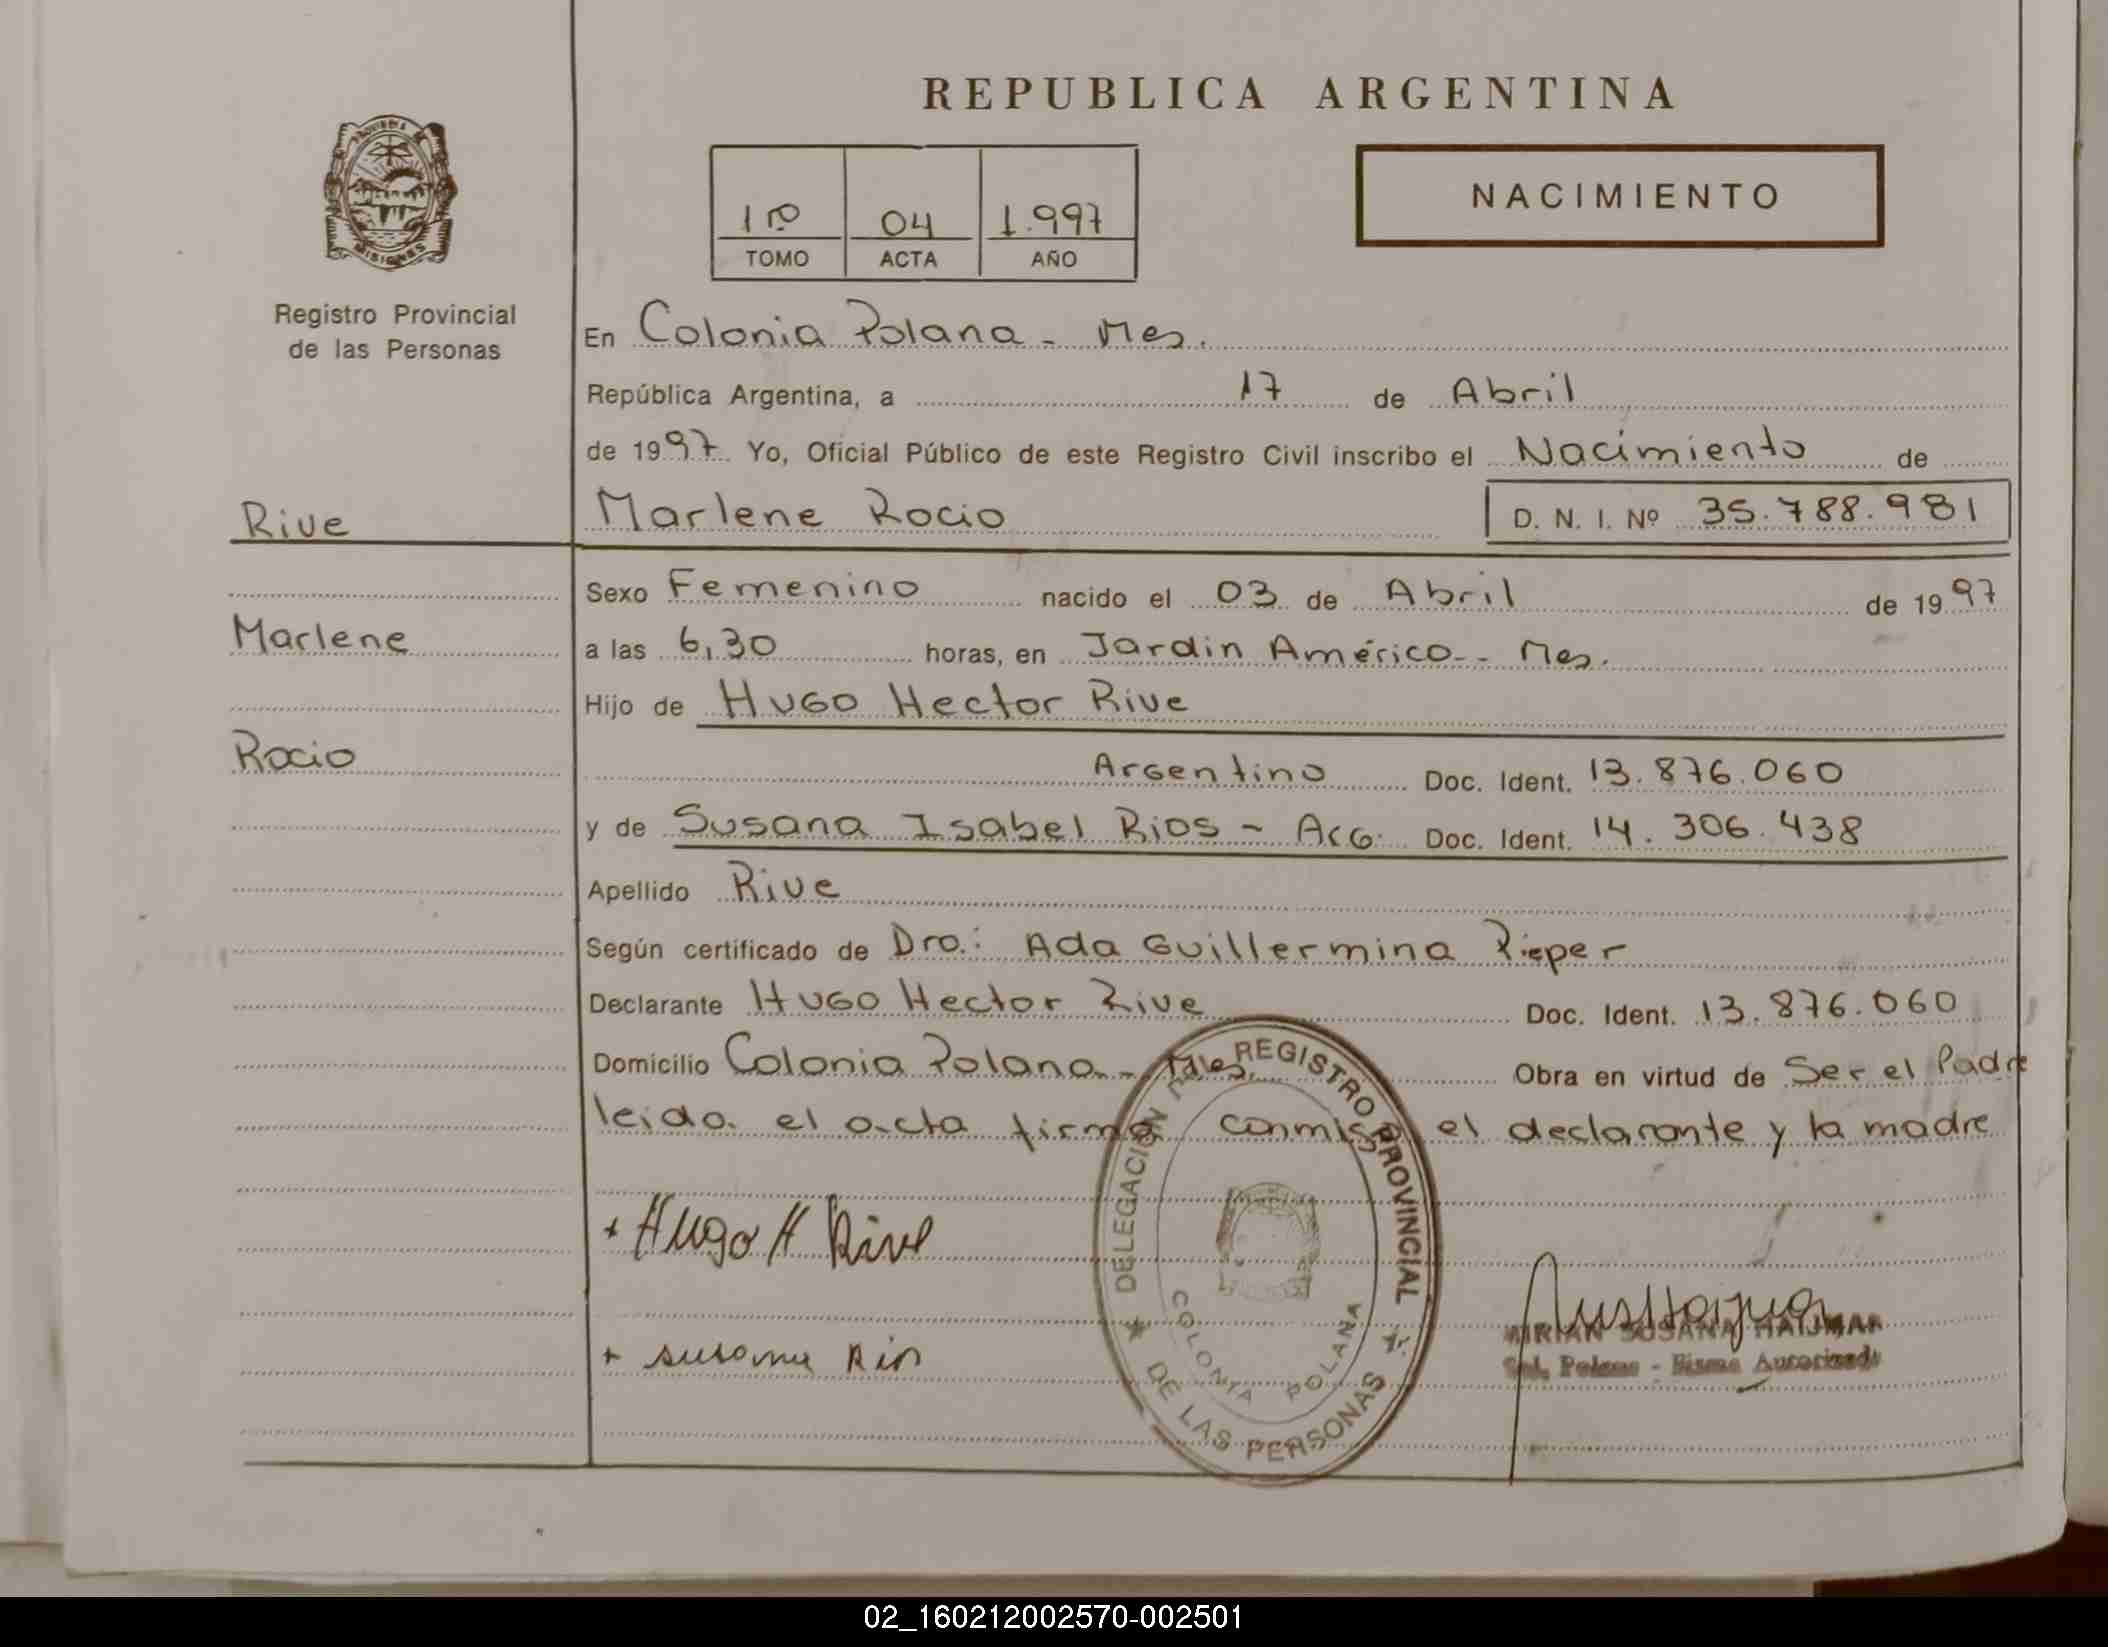 REPUBLICA ARGENTINA
PROVINCIA DE
MISIONES
Registro Provincial
de las Personas
1ro 04 1.997
TOMO ACTA AÑO
NACIMIENTO
En Colonia Polana - Mes.
República Argentina, a 17 de Abril
de 1997 Yo, Oficial Público de este Registro Civil inscribo el Nacimiento de
Rive Marlene Rocio D. N. I. Nº 35.788.981
Sexo Femenino nacido el 03 de Abril de 1997
Marlene a las 6,30 horas, en Jardin América - Mes.
Hijo de Hugo Hector Rive
Rocio Argentino Doc. Ident. 13.876.060
y de Susana Isabel Rios - Arg. Doc. Ident. 14.306.438
Apellido Rive
Según certificado de Dra.: Ada Guillermina Pieper
Declarante Hugo Hector Rive Doc. Ident. 13.876.060
Domicilio Colonia Polana - Mes. Obra en virtud de Ser el Padre
leida el acta firma conmigo el declarante y la madre
+ Hugo H Rive
+ Susana Rios
DELEGACION REGISTRO PROVINCIAL
DE LAS PERSONAS
COLONIA POLANA
MIRIAN SUSANA HAIJMAN
Col. Polana - Firma Autorizada
02_160212002570-002501